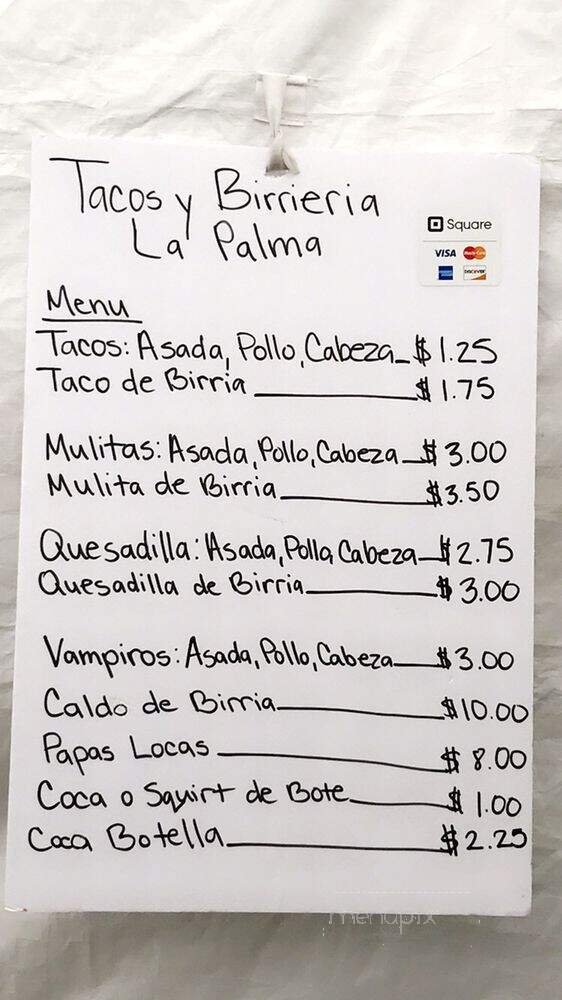 Tacos y Birrieria
La Palma
Square
VISA MasterCard
DISCOVER
Menu
Tacos: Asada, Pollo, Cabeza $1.25
Taco de Birria $1.75
Mulitas: Asada, Pollo, Cabeza $3.00
Mulita de Birria $3.50
Quesadilla: Asada, Pollo, Cabeza $2.75
Quesadilla de Birria $3.00
Vampiros: Asada, Pollo, Cabeza $3.00
Caldo de Birria $10.00
Papas Locas $8.00
Coca o Squirt de Bote $1.00
Coca Botella $2.25
menupix